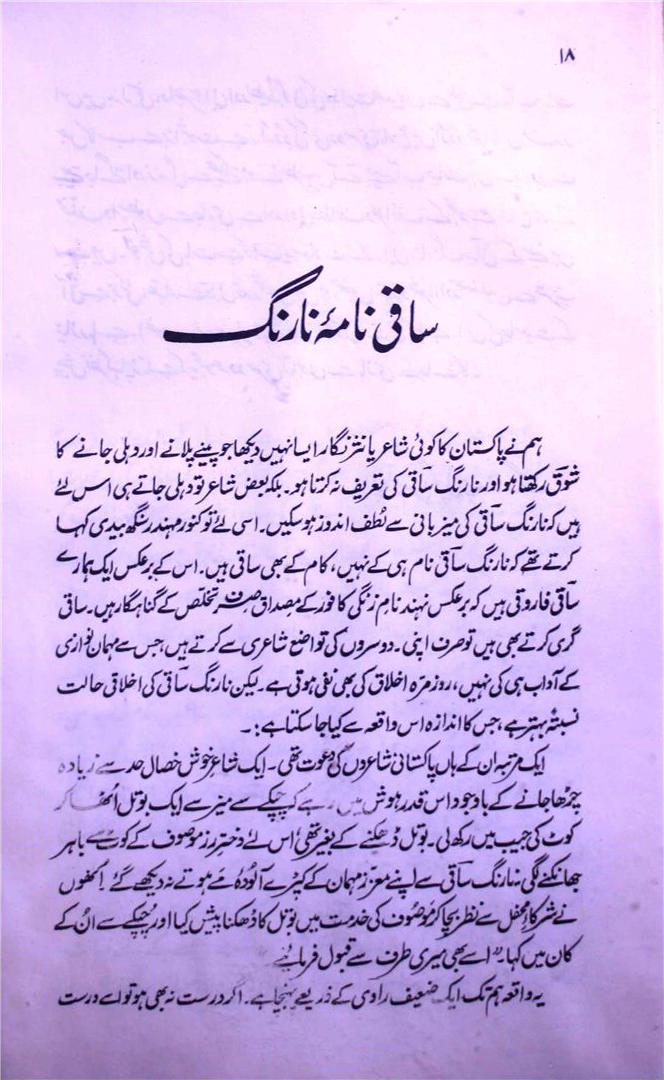 ۱۸
ساقی نامۂ نارنگ
ہم نے پاکستان کا کوئی شاعر یا نثر نگار ایسا نہیں دیکھا جو پینے پلانے اور دہلی جانے کا
شوق رکھتا ہو اور نارنگ ساقی کی تعریف نہ کرتا ہو۔ بلکہ بعض شاعر تو دہلی جاتے ہی اس لئے
ہیں کہ نارنگ ساقی کی میزبانی سے لُطف اندوز ہو سکیں۔ اسی لئے تو کنور مہندر سنگھ بیدی کہا
کرتے تھے کہ نارنگ ساقی نام ہی کے نہیں، کام کے بھی ساقی ہیں۔ اس کے برعکس ایک ہمارے
ساقی فاروقی ہیں کہ برعکس نہند نامِ زنگی کافور کے مصداق صرف تخلّص کے گناہگار ہیں۔ ساقی
گری کرتے بھی ہیں تو صرف اپنی۔ دوسروں کی تواضع شاعری سے کرتے ہیں جس سے مہمان نوازی
کے آداب ہی کی نہیں، روزمرہ اخلاق کی بھی نفی ہوتی ہے۔ لیکن نارنگ ساقی کی اخلاقی حالت
نسبتہً بہتر ہے، جس کا اندازہ اس واقعہ سے کیا جا سکتا ہے:۔
ایک مرتبہ ان کے ہاں پاکستانی شاعروں کی دعوت تھی۔ ایک شاعرِ خوش خصال حد سے زیادہ
چڑھا جانے کے باوجود اس قدر ہوش میں رہے کہ چپکے سے میز سے ایک بوتل اُٹھا کر
کوٹ کی جیب میں رکھ لی۔ بوتل ڈھکنے کے بغیر تھی اس لئے دخترِ رز موصوف کے کوٹ سے باہر
جھانکنے لگی۔ نارنگ ساقی سے اپنے معزز مہمان کے کپڑے آلودۂ مے ہوتے نہ دیکھے گئے۔ اُنھوں
نے شرکاءِ محفل سے نظر بچا کر موصوف کی خدمت میں بوتل کا ڈھکنا پیش کیا اور چُپکے سے اُن کے
کان میں کہا۔ "اسے بھی میری طرف سے قبول فرمائیے"
یہ واقعہ ہم تک ایک ضعیف راوی کے ذریعے پہنچا ہے۔ اگر درست نہ بھی ہو تو اسے درست